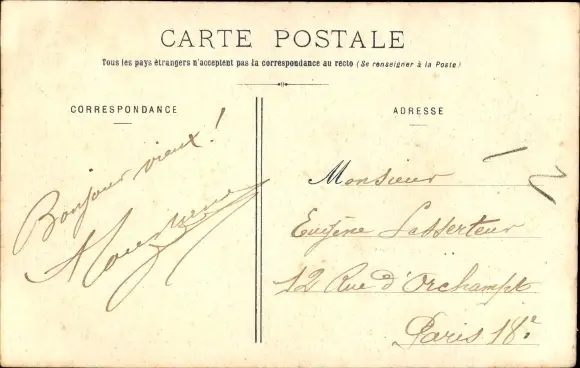 CARTE POSTALE
Tous les pays étrangers n'acceptent pas la correspondance au recto (Se renseigner à la Poste)
CORRESPONDANCE
Bonjour vieux!
ADRESSE
Monsieur
Eugène Lasserteur
12 Rue d'Orchampt
Paris 18e